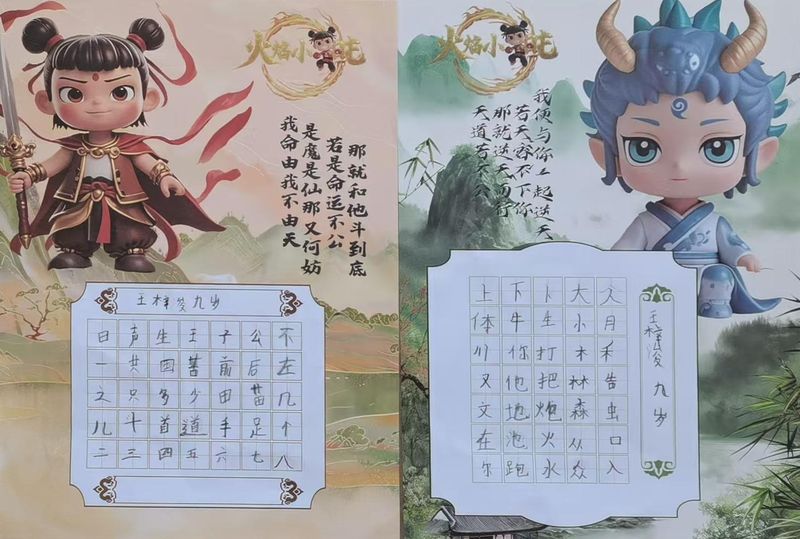 火焰小吒
那就和他斗到底
若是命运不公
是魔是仙那又何妨
我命由我不由天
王梓浚九岁
日声生王子公不
一共四著前后左
之只多少田苗几
儿十首道手足个
二三四五六七八
火焰小吒
我便与你一起逆天
若天容不下你
那就逆天而行
天道若不公
上下卜大
体牛生小月
川你打木禾
又他把林告
文地炮森虫
在泡火从口
尔跑水众入
王梓浚 九岁